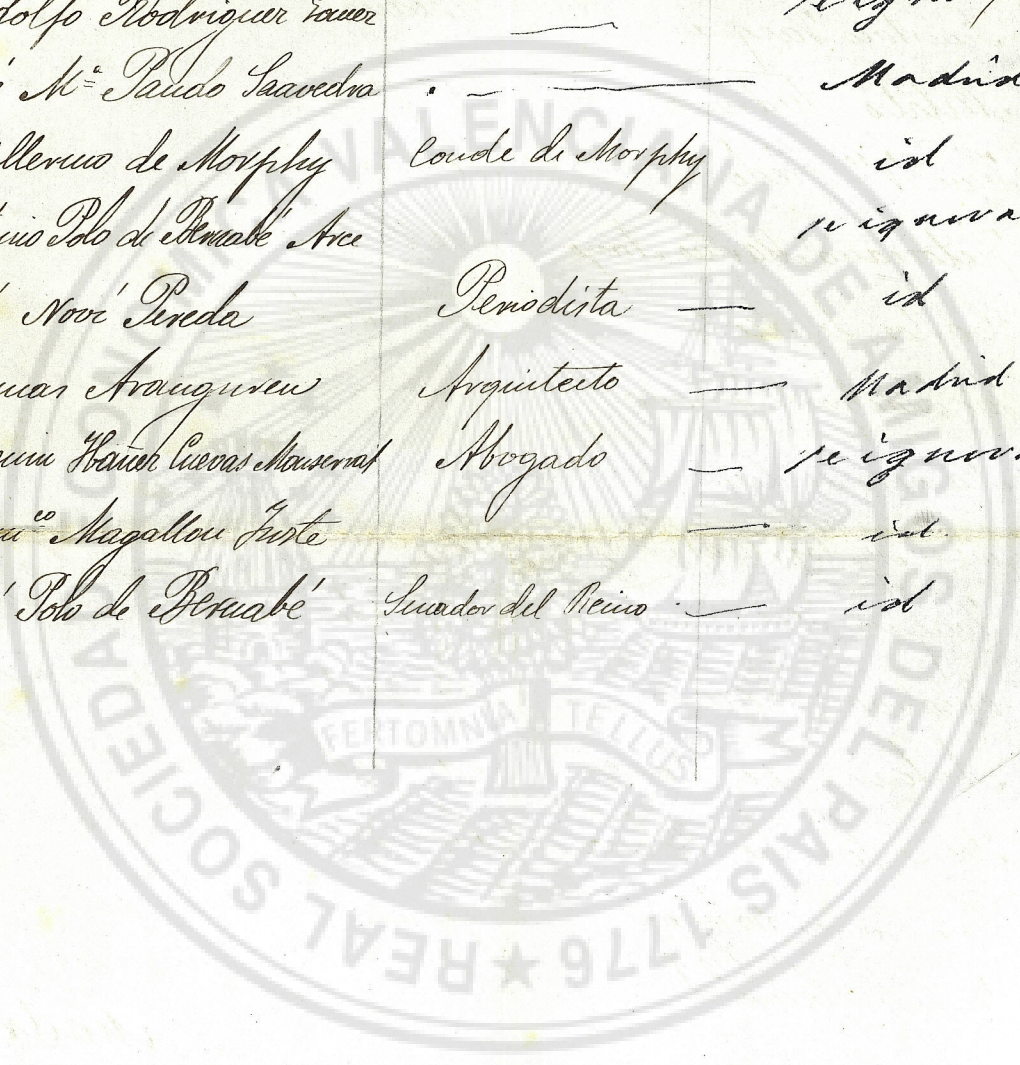 dolfo Rodriguez
Mª Pando Saavedra — Madrid
llermo de Morphy Conde de Morphy id
Polo de Bernabé Arce se ignora
Noví Pereda Periodista — id
mas Aranguren Arquitecto — Madrid
Ibañez Cuevas Monserrat Abogado — se ignora
co Magallon — id.
Polo de Bernabé Senador del Reino — id
REAL SOCIEDA CONOMICA VALENCIANA DE AMIGOS DEL PAIS 1776
FERT OMNIA TELLUS